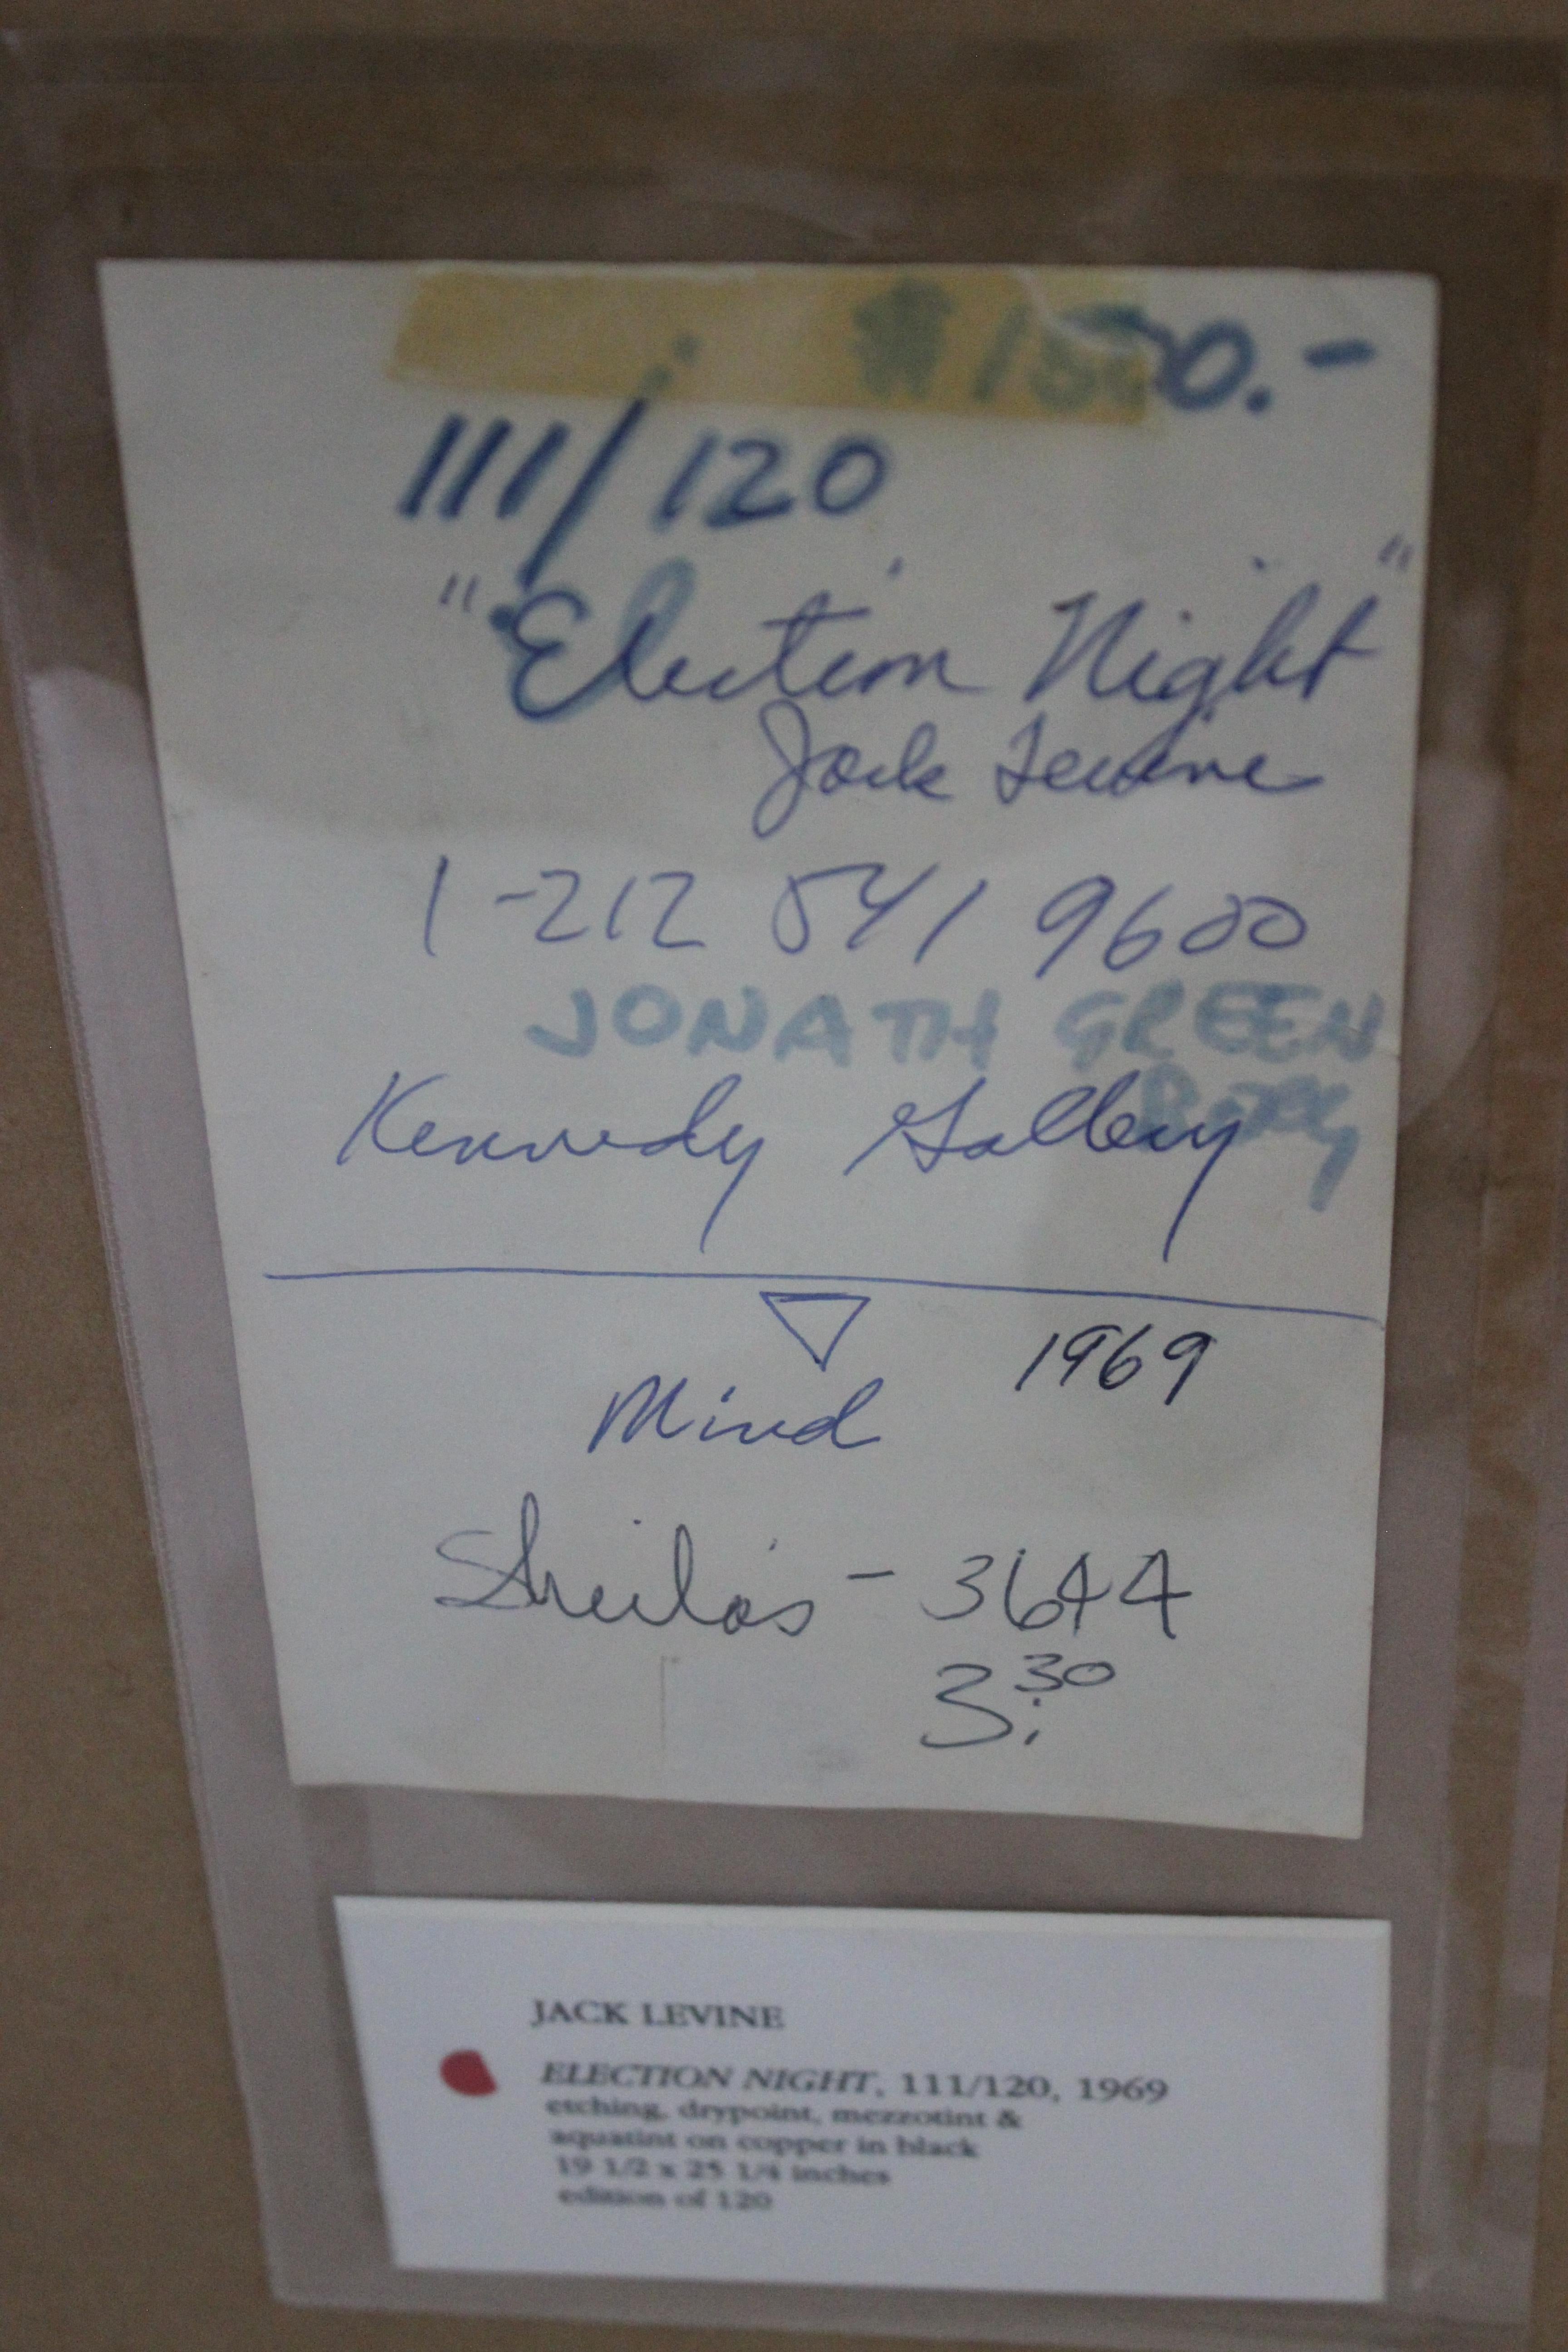 $1500.-
111/120
"Election Night"
Jack Levine
1-212 541 9600
JONATH GREEN
Kennedy Gallery
1969
Mind
Sheila's - 3644
3:30
JACK LEVINE
ELECTION NIGHT, 111/120, 1969
etching, drypoint, mezzotint &
aquatint on copper in black
19 1/2 x 25 1/4 inches
edition of 120